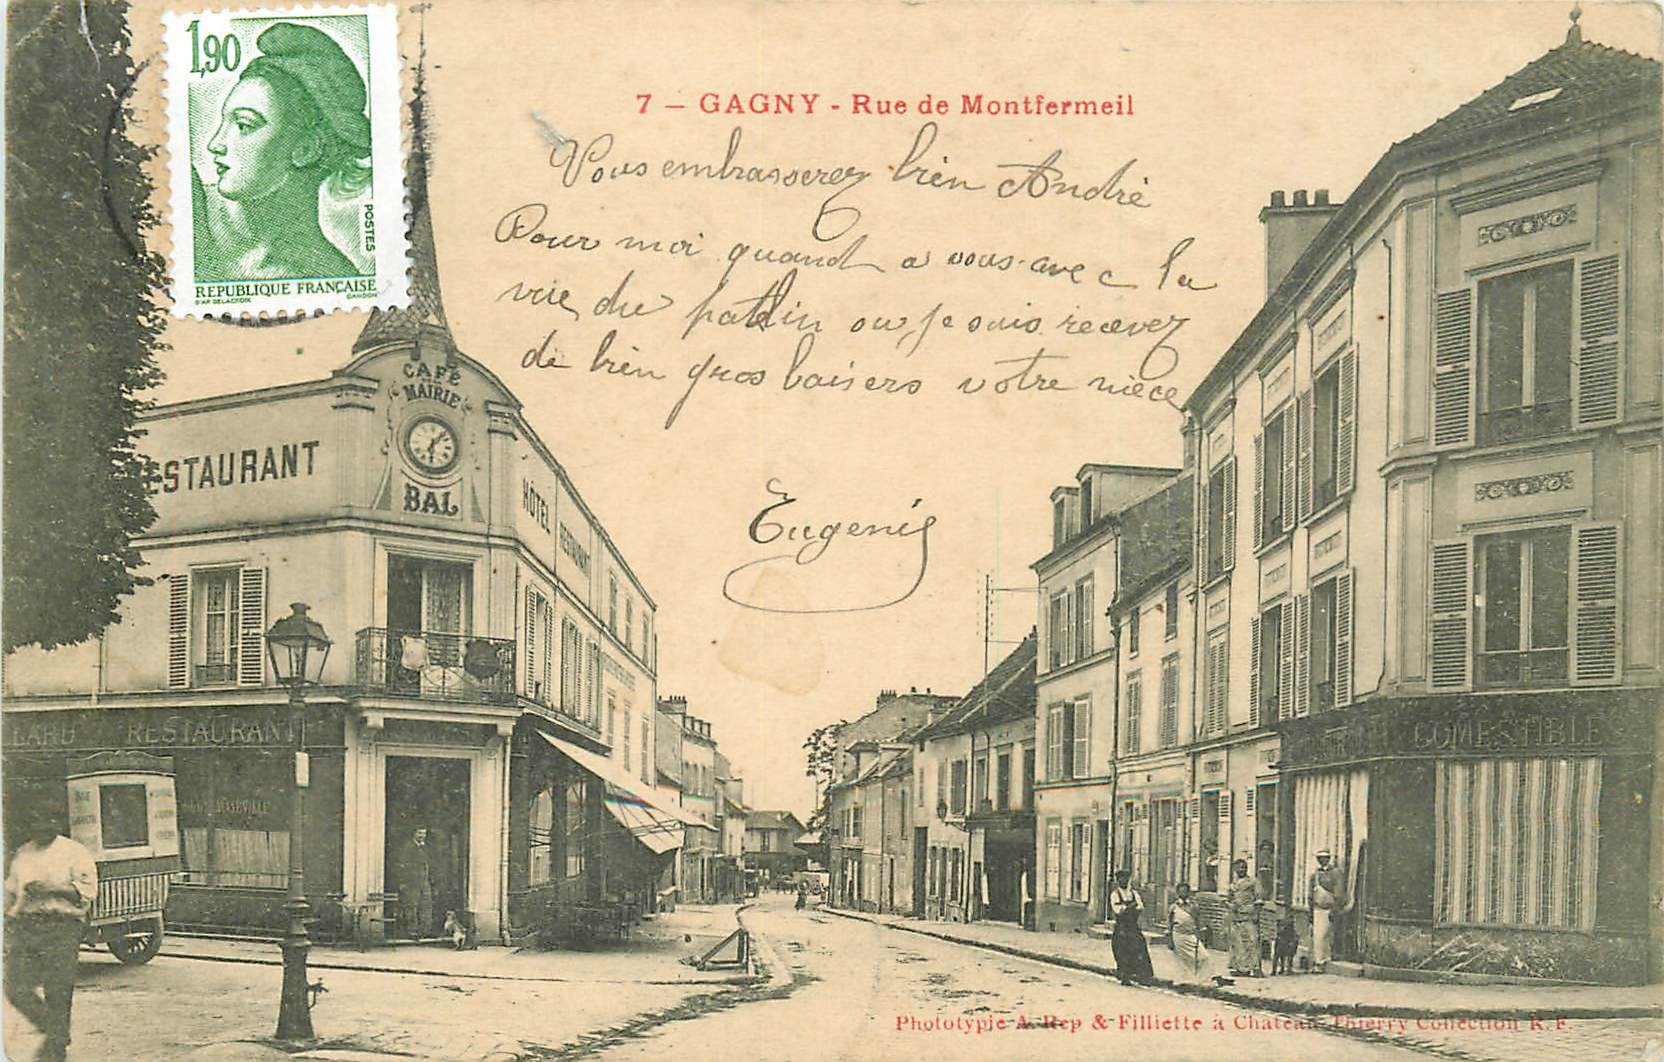 1,90
POSTES
REPUBLIQUE FRANÇAISE
D'AP. DELACROIX GANDON
7 — GAGNY - Rue de Montfermeil
Vous embrasserez bien André
Pour moi quand
vous avec la
du patelin ou je suis recevez
de bien gros baisers votre nièce
Eugenie
CAFÉ
MAIRIE
BAL
ESTAURANT
HÔTEL RESTAURANT
LARD RESTAURANT
COMESTIBLES
Phototypie A. Rep & Filliette à Chateau-Thierry Collection R. F.